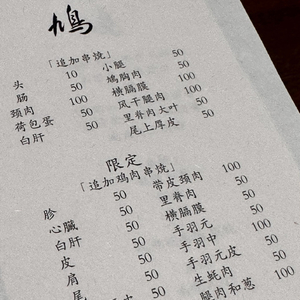 鳩
「追加串烧」
头 10
肠 50
颈肉 100
荷包蛋
白肝 50
小腿 50
鸠胸肉 50
横膈膜 100
风干腿肉 100
里脊肉大叶 50
尾上厚皮 50
限定
「追加鸡肉串烧」
胗 50
心臓 50
白肝 50
皮 50
肩 50
尾 50
带皮颈肉 100
里脊肉 50
横膈膜 50
手羽元 100
手羽中 100
手羽元皮 50
生蚝肉 100
腿肉和葱 100